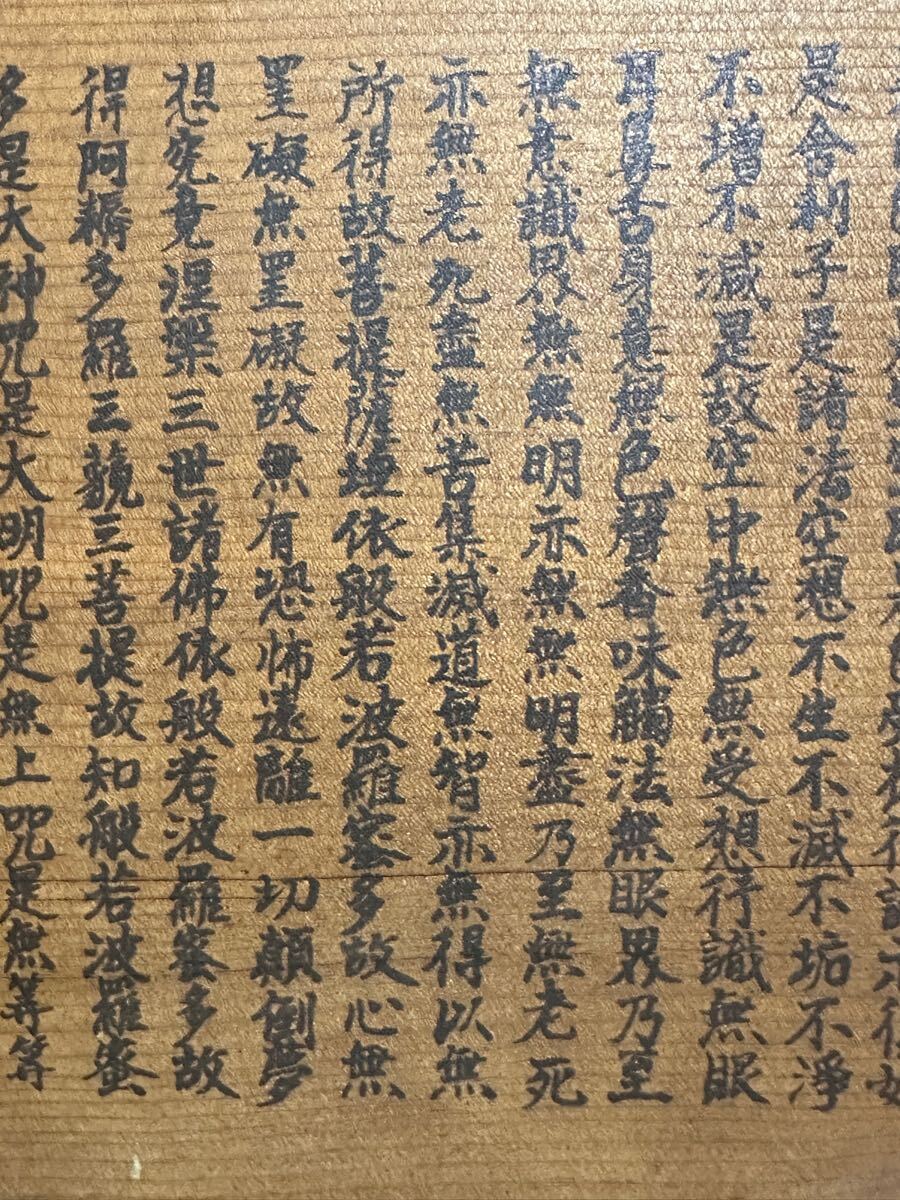 是舍利子是諸法空想不生不滅不垢不淨
不增不減是故空中無色無受想行識無眼
耳鼻舌身意無色聲香味觸法無眼界乃至
無意識界無無明亦無無明盡乃至無老死
亦無老死盡無苦集滅道無智亦無得以無
所得故菩提薩埵依般若波羅蜜多故心無
罣礙無罣礙故無有恐怖遠離一切顛倒夢
想究竟涅槃三世諸佛依般若波羅蜜多故
得阿耨多羅三藐三菩提故知般若波羅蜜
多是大神咒是大明咒是無上咒是無等等